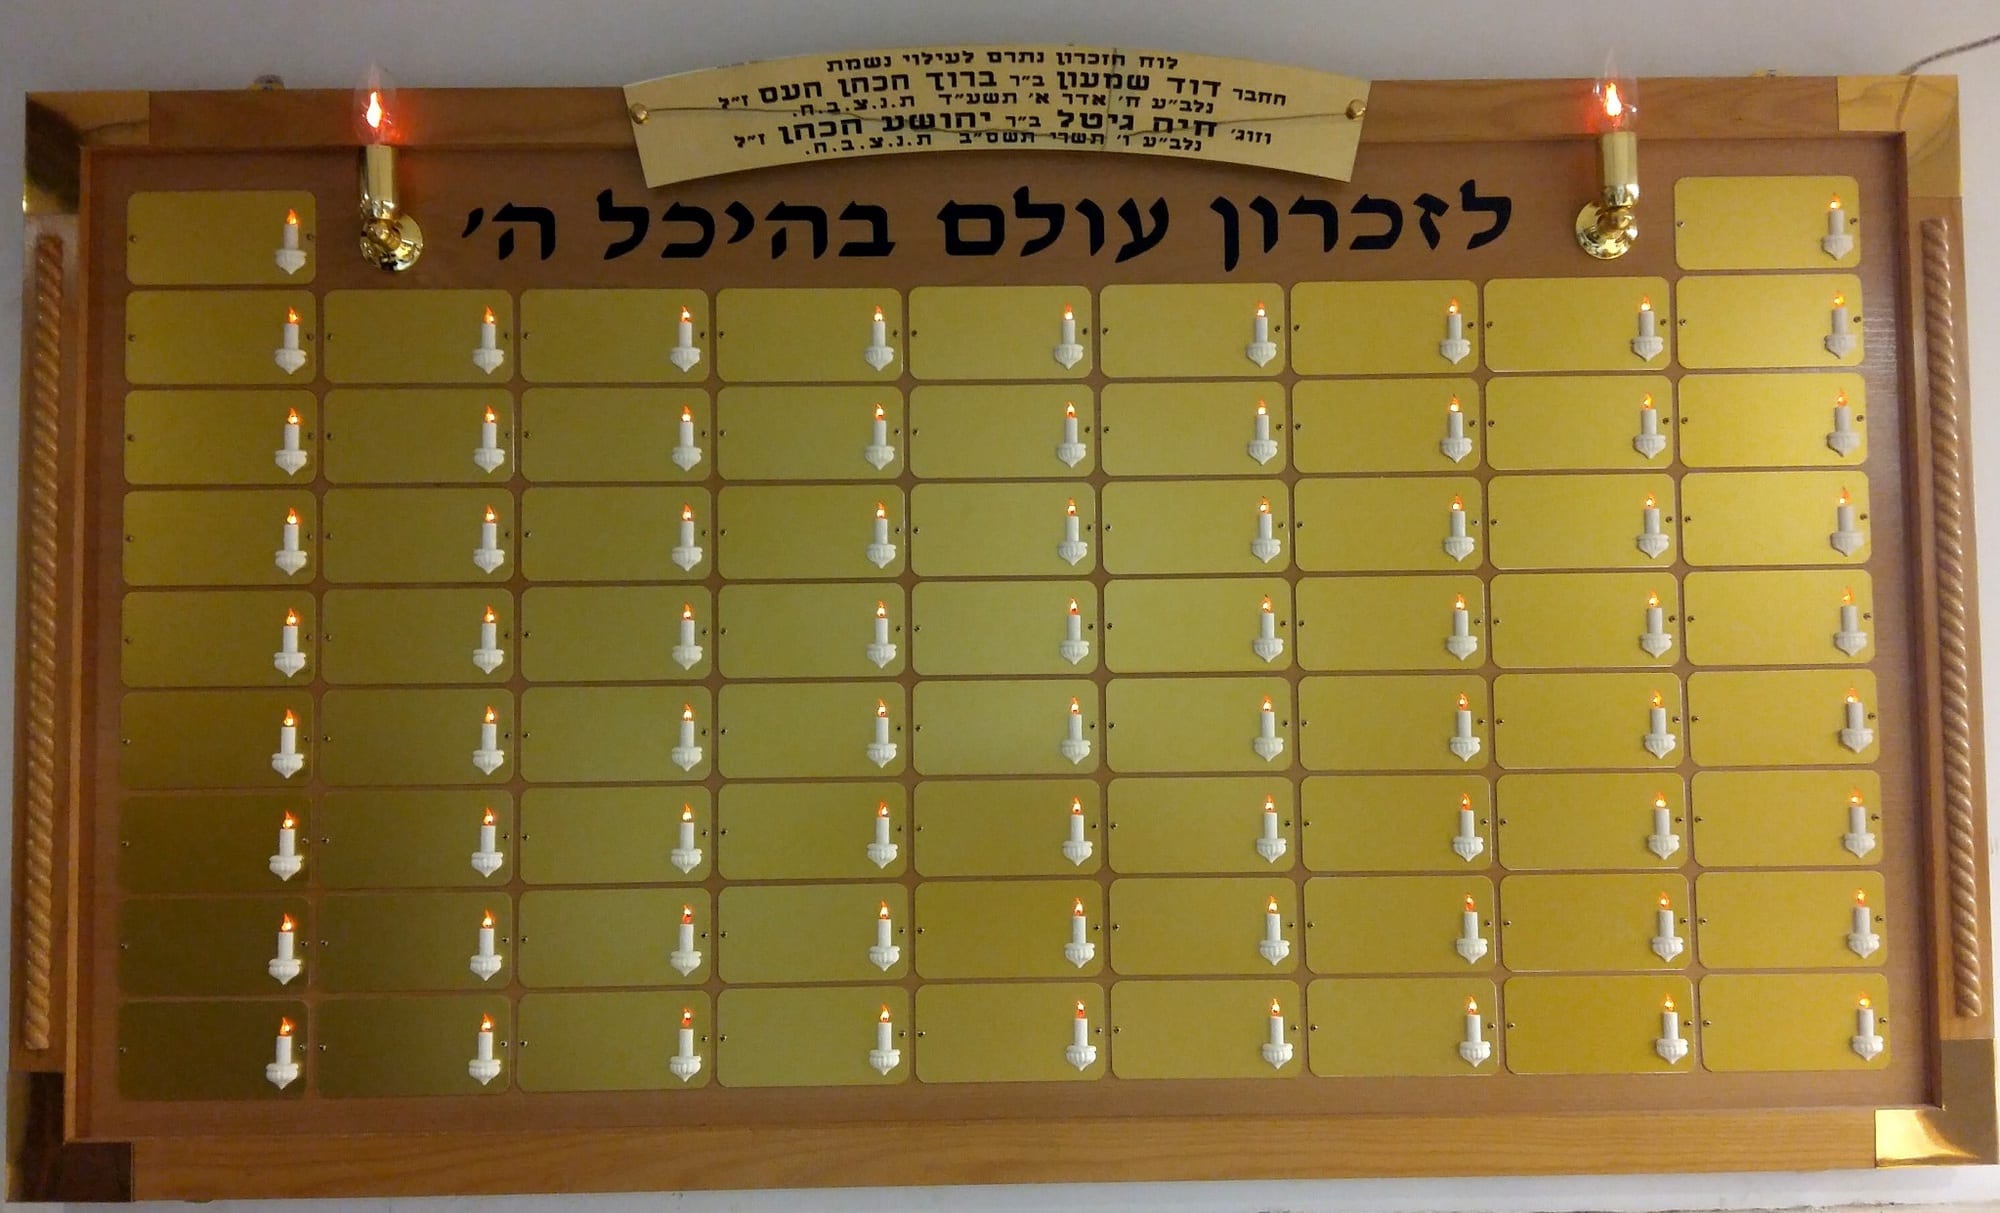 לוח הזכרון נתרם לעילוי נשמת
החבר דוד שמעון ב״ר ברוך הכהן העס ז״ל
נלב״ע ח׳ אדר א׳ תשע״ד ת.נ.צ.ב.ה.
וזוג׳ חיה גיטל ב״ר יהושע הכהן ז״ל
נלב״ע ו׳ תשרי תשס״ב ת.נ.צ.ב.ה.
לזכרון עולם בהיכל ה׳